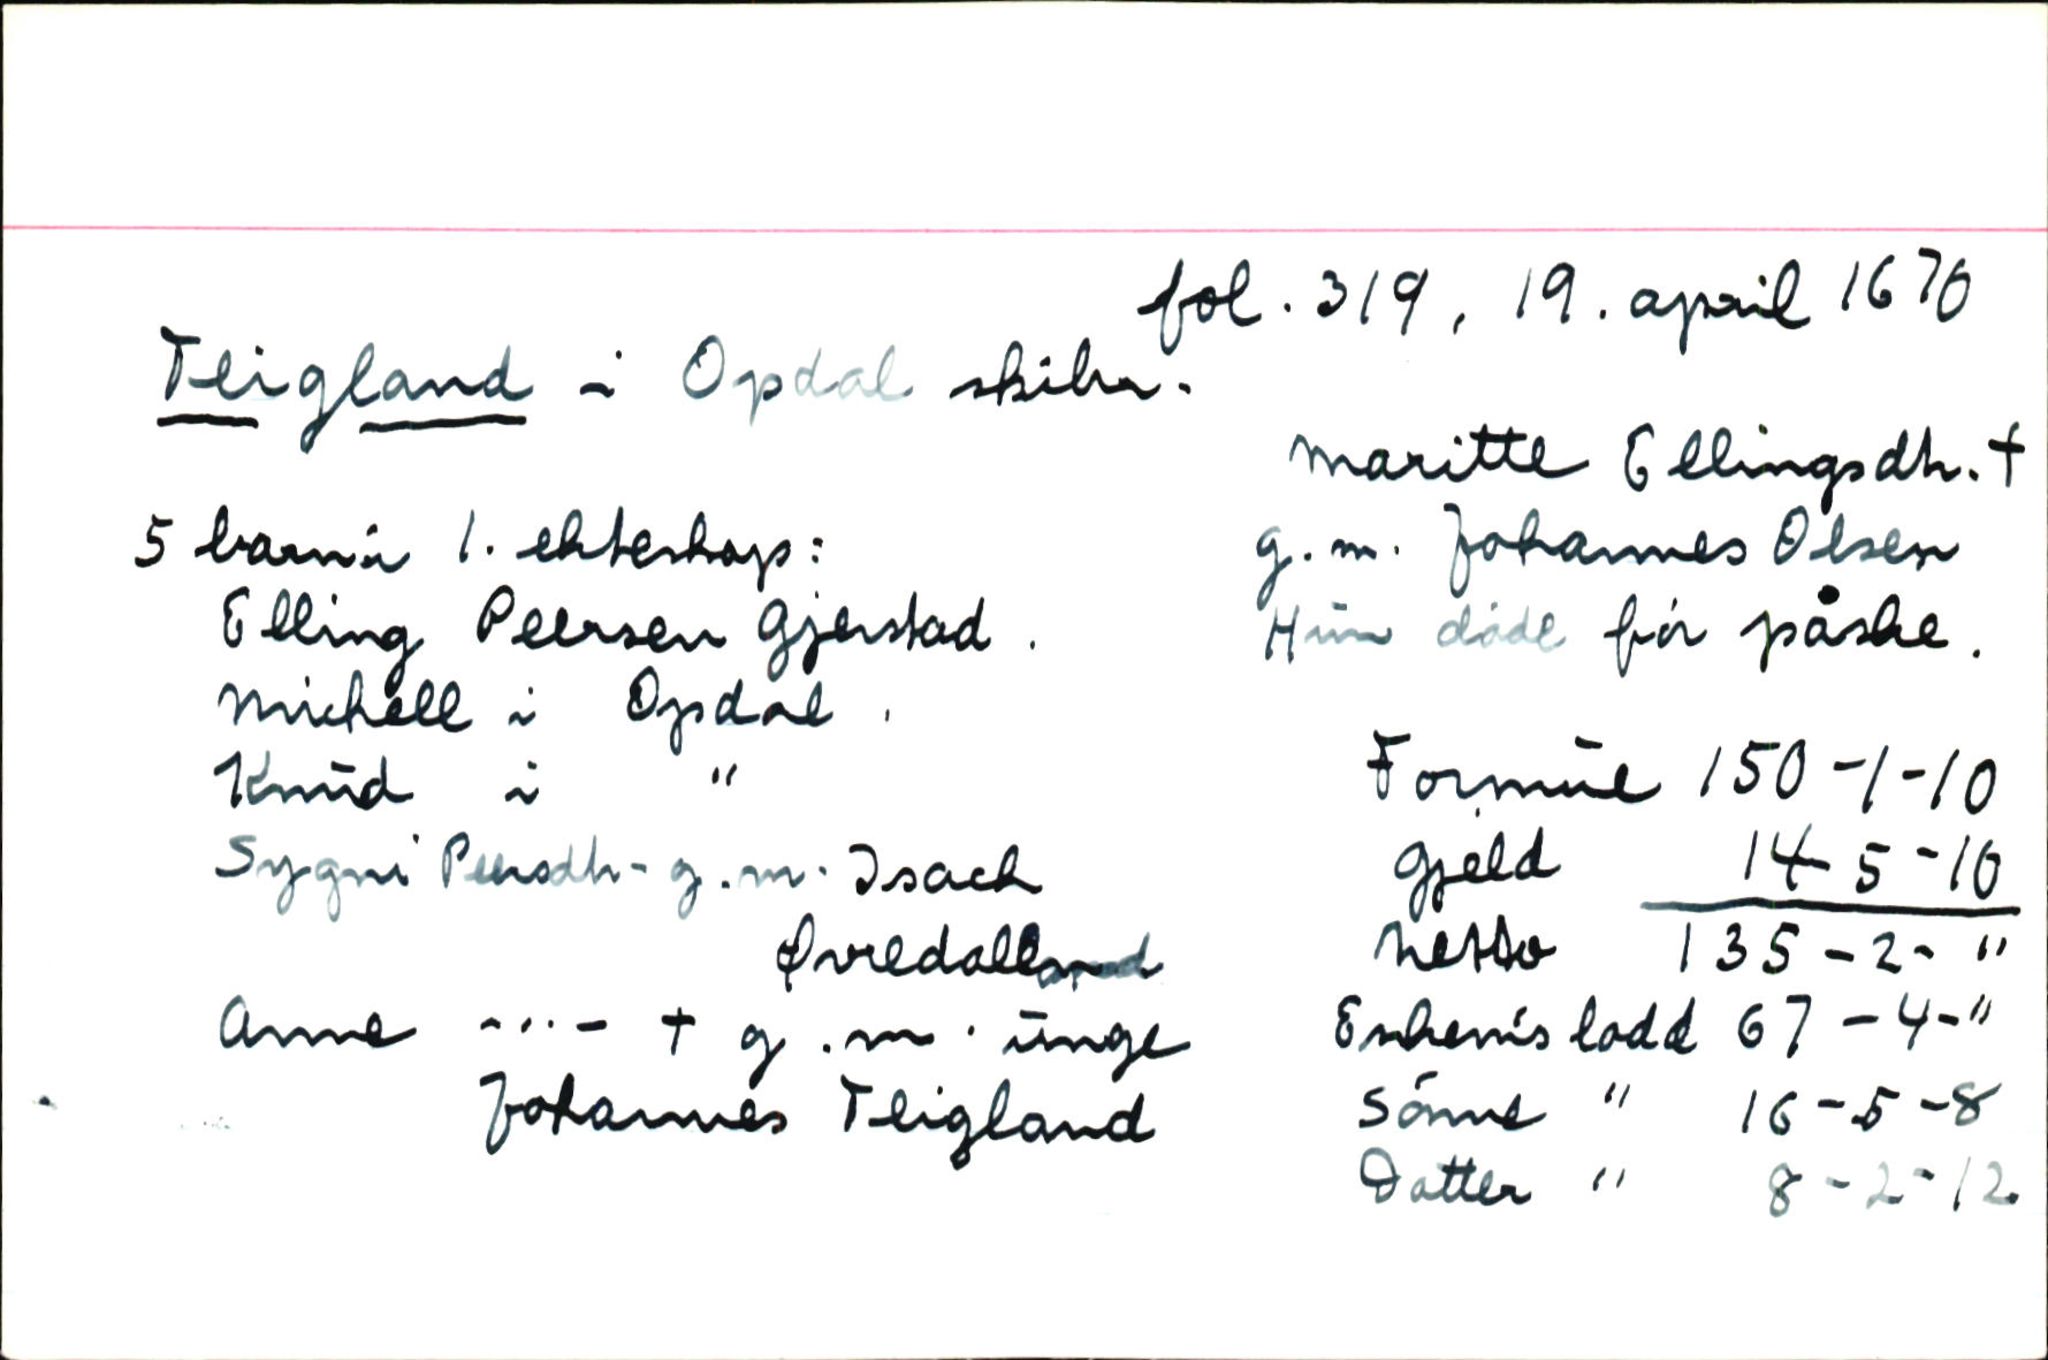 fol. 319, 19. april 1670
Teigland i Opdal skibr.
Maritte Ellingsdtr. †
g.m. Johannes Olsen
Hun døde før påske.
5 barn i 1. ekteskap:
Elling Peersen Gjerstad.
Michell i Opdal.
Knud i "
Sygni Peersdtr. g.m. Isach
Øvredalland
Anne -"- † g.m. unge
Johannes Teigland
Formue 150-1-10
Gjeld 14-5-10
Netto 135-2-"
Enkem's lodd 67-4-"
Sønne " 16-5-8
Datter " 8-2-12